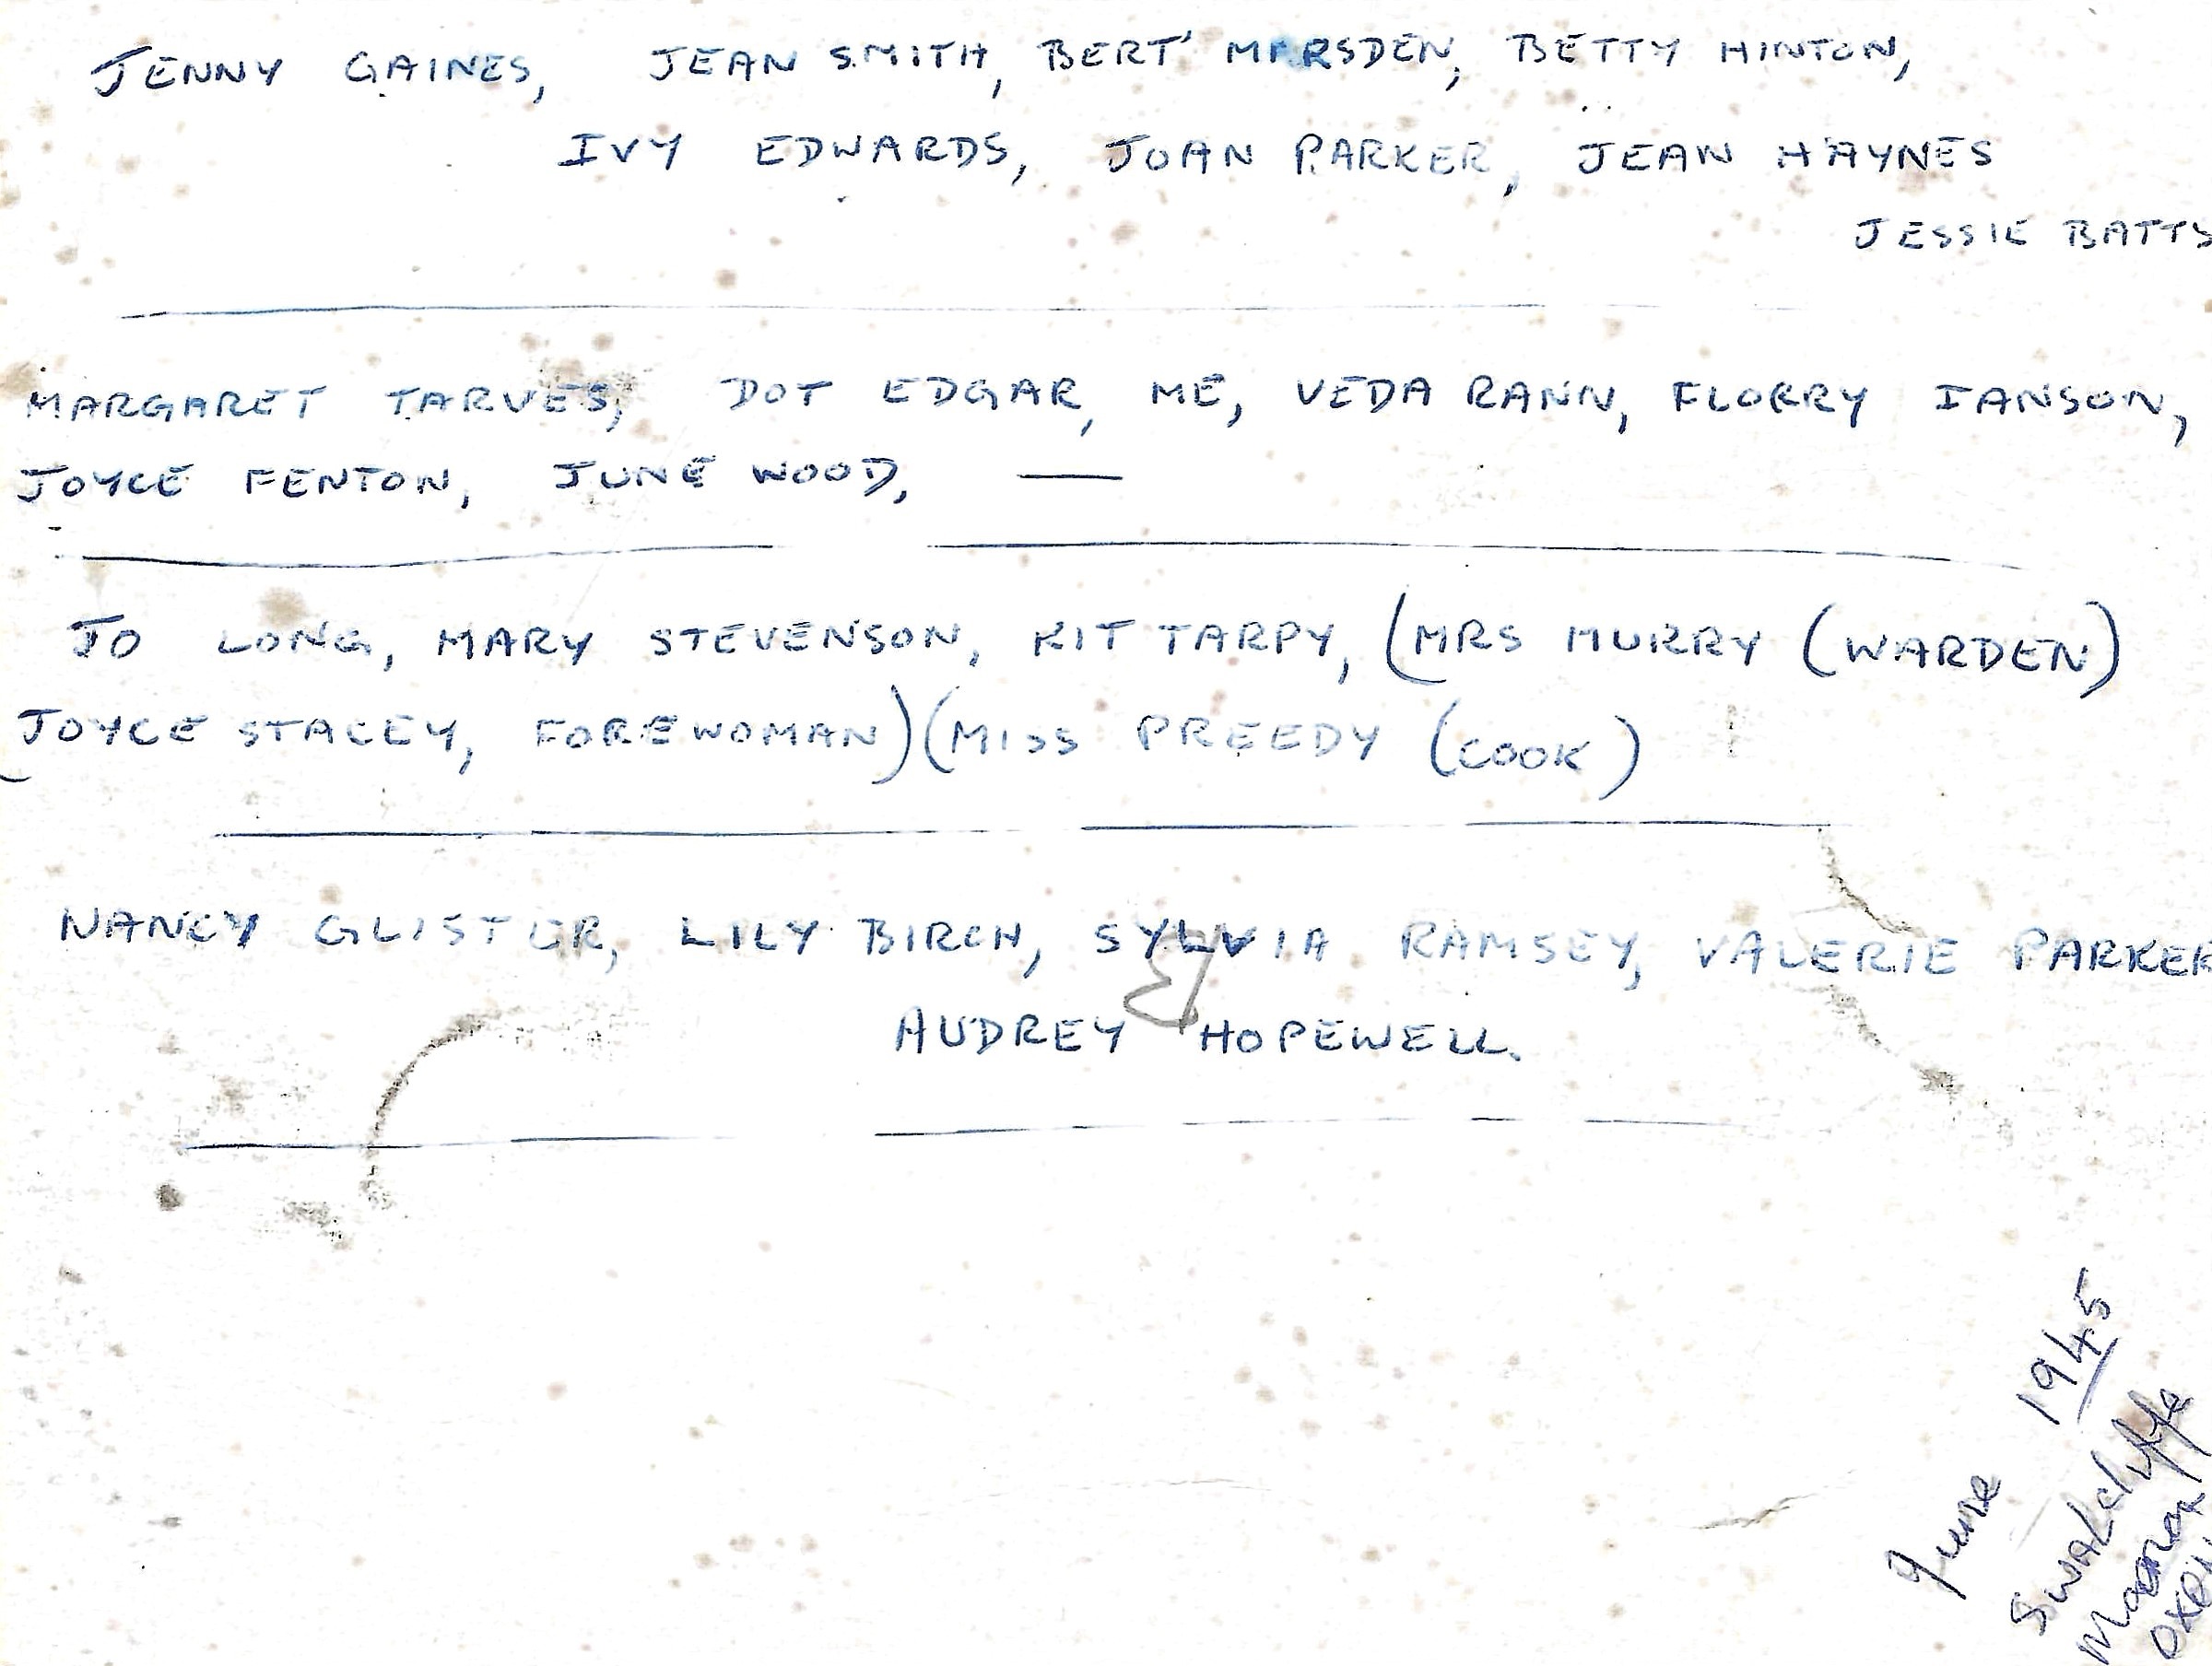 JENNY GAINES, JEAN SMITH, BERT' MARSDEN, BETTY HINTON,
IVY EDWARDS, JOAN PARKER, JEAN HAYNES
JESSIE BATTS
MARGARET TARVES, DOT EDGAR, ME, VEDA RANN, FLORRY IANSON,
JOYCE FENTON, JUNE WOOD, —
JO LONG, MARY STEVENSON, KIT TARPY, (MRS MURRY (WARDEN)
(JOYCE STACEY, FOREWOMAN) (MISS PREEDY (COOK)
NANCY GLISTER, LILY BIRCH, SYLVIA RAMSEY, VALERIE PARKER
AUDREY HOPEWELL.
June 1945
Swalcliffe
Manor
OXON